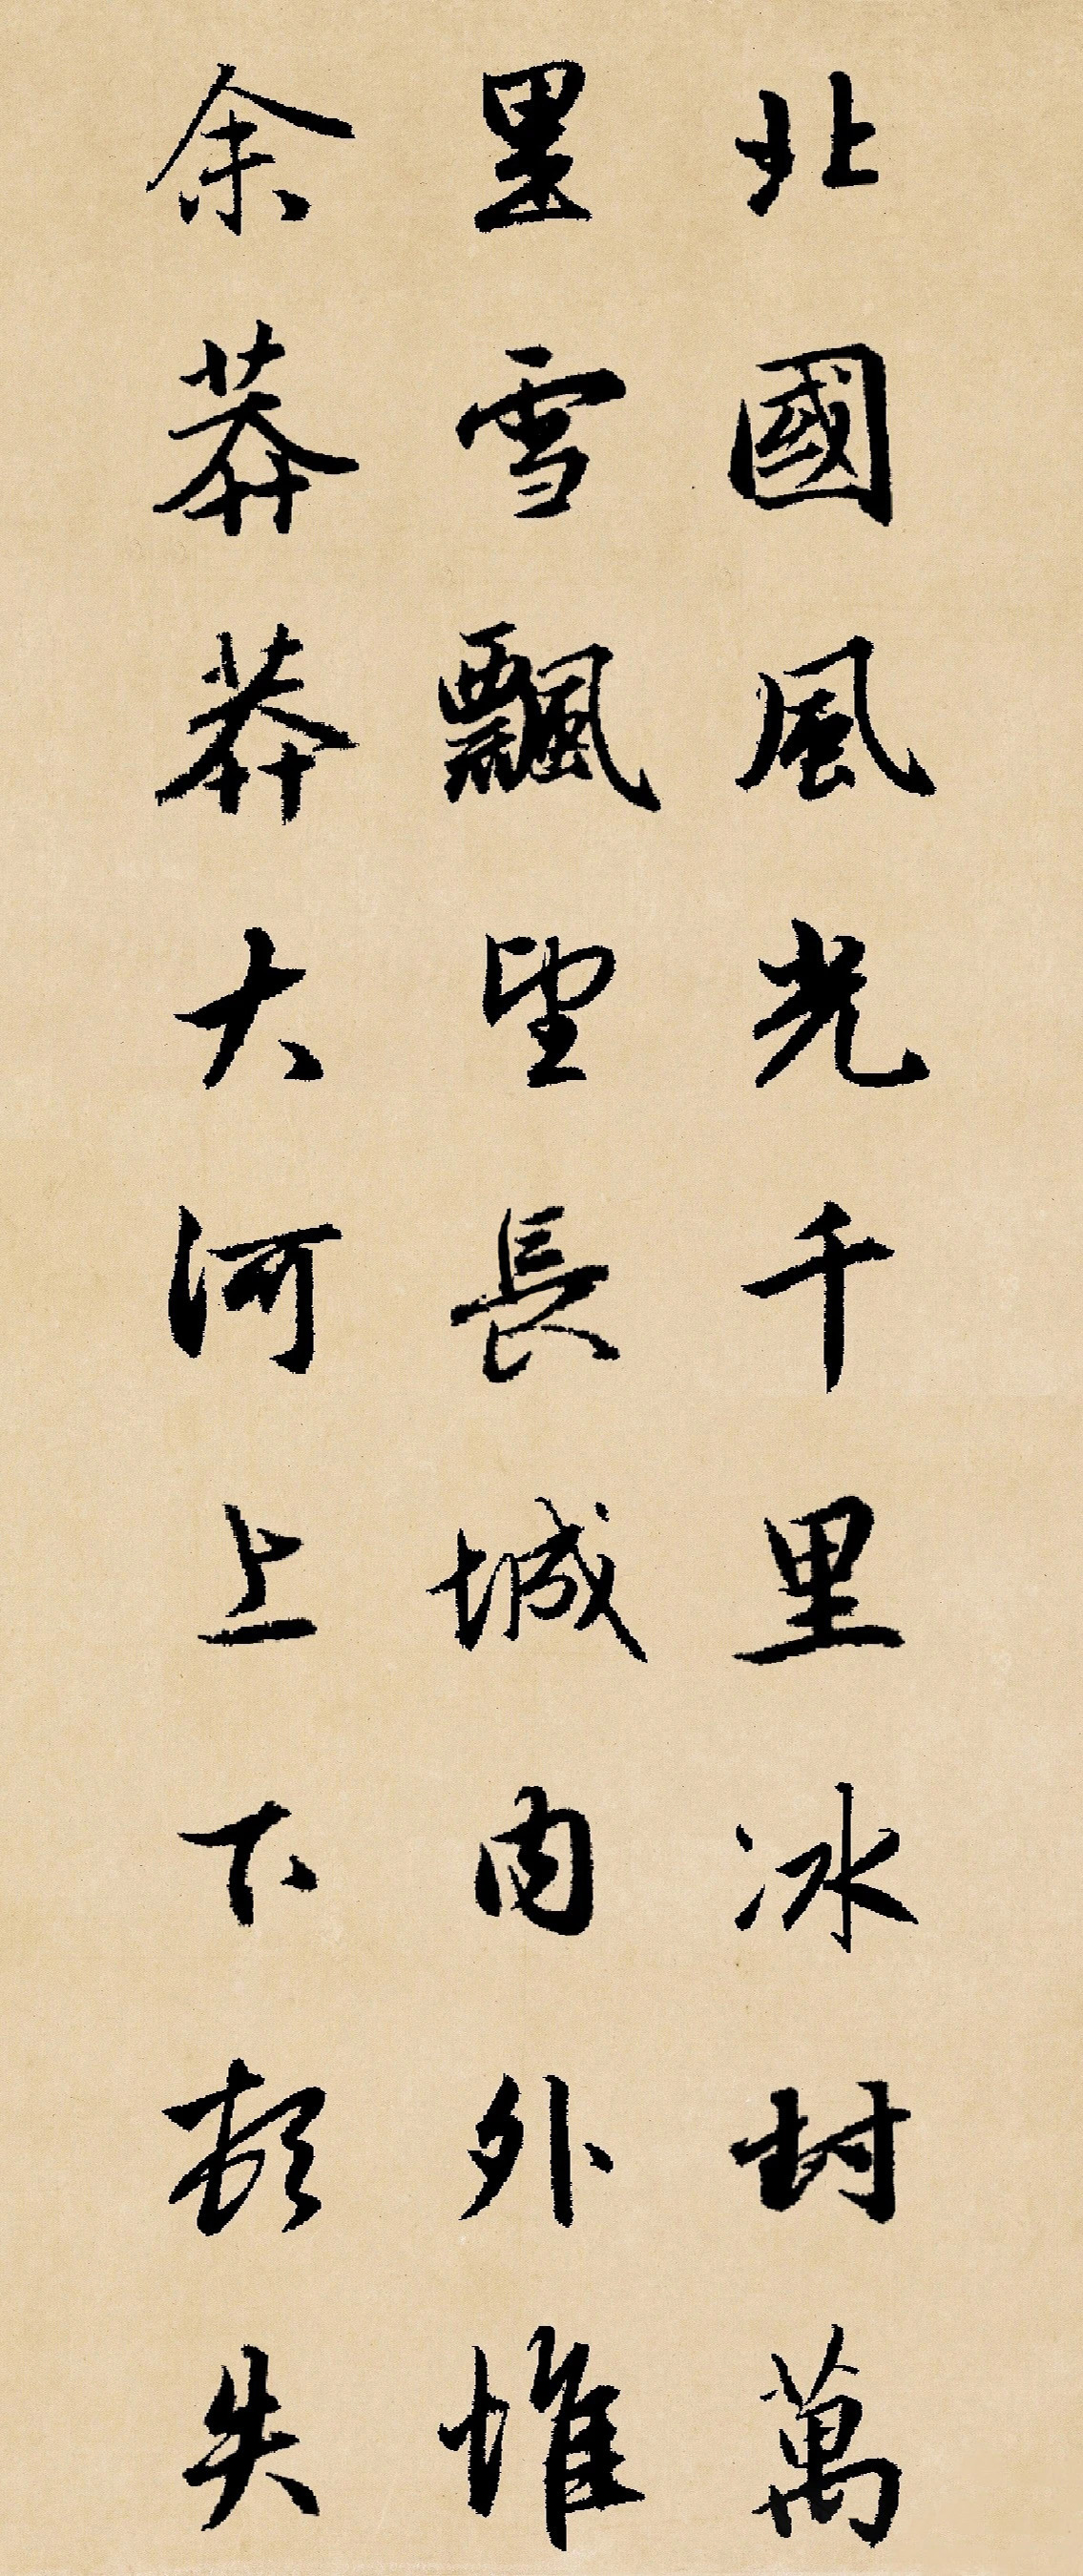 北國風光千里冰封萬
里雪飄望長城內外惟
余莽莽大河上下頓失